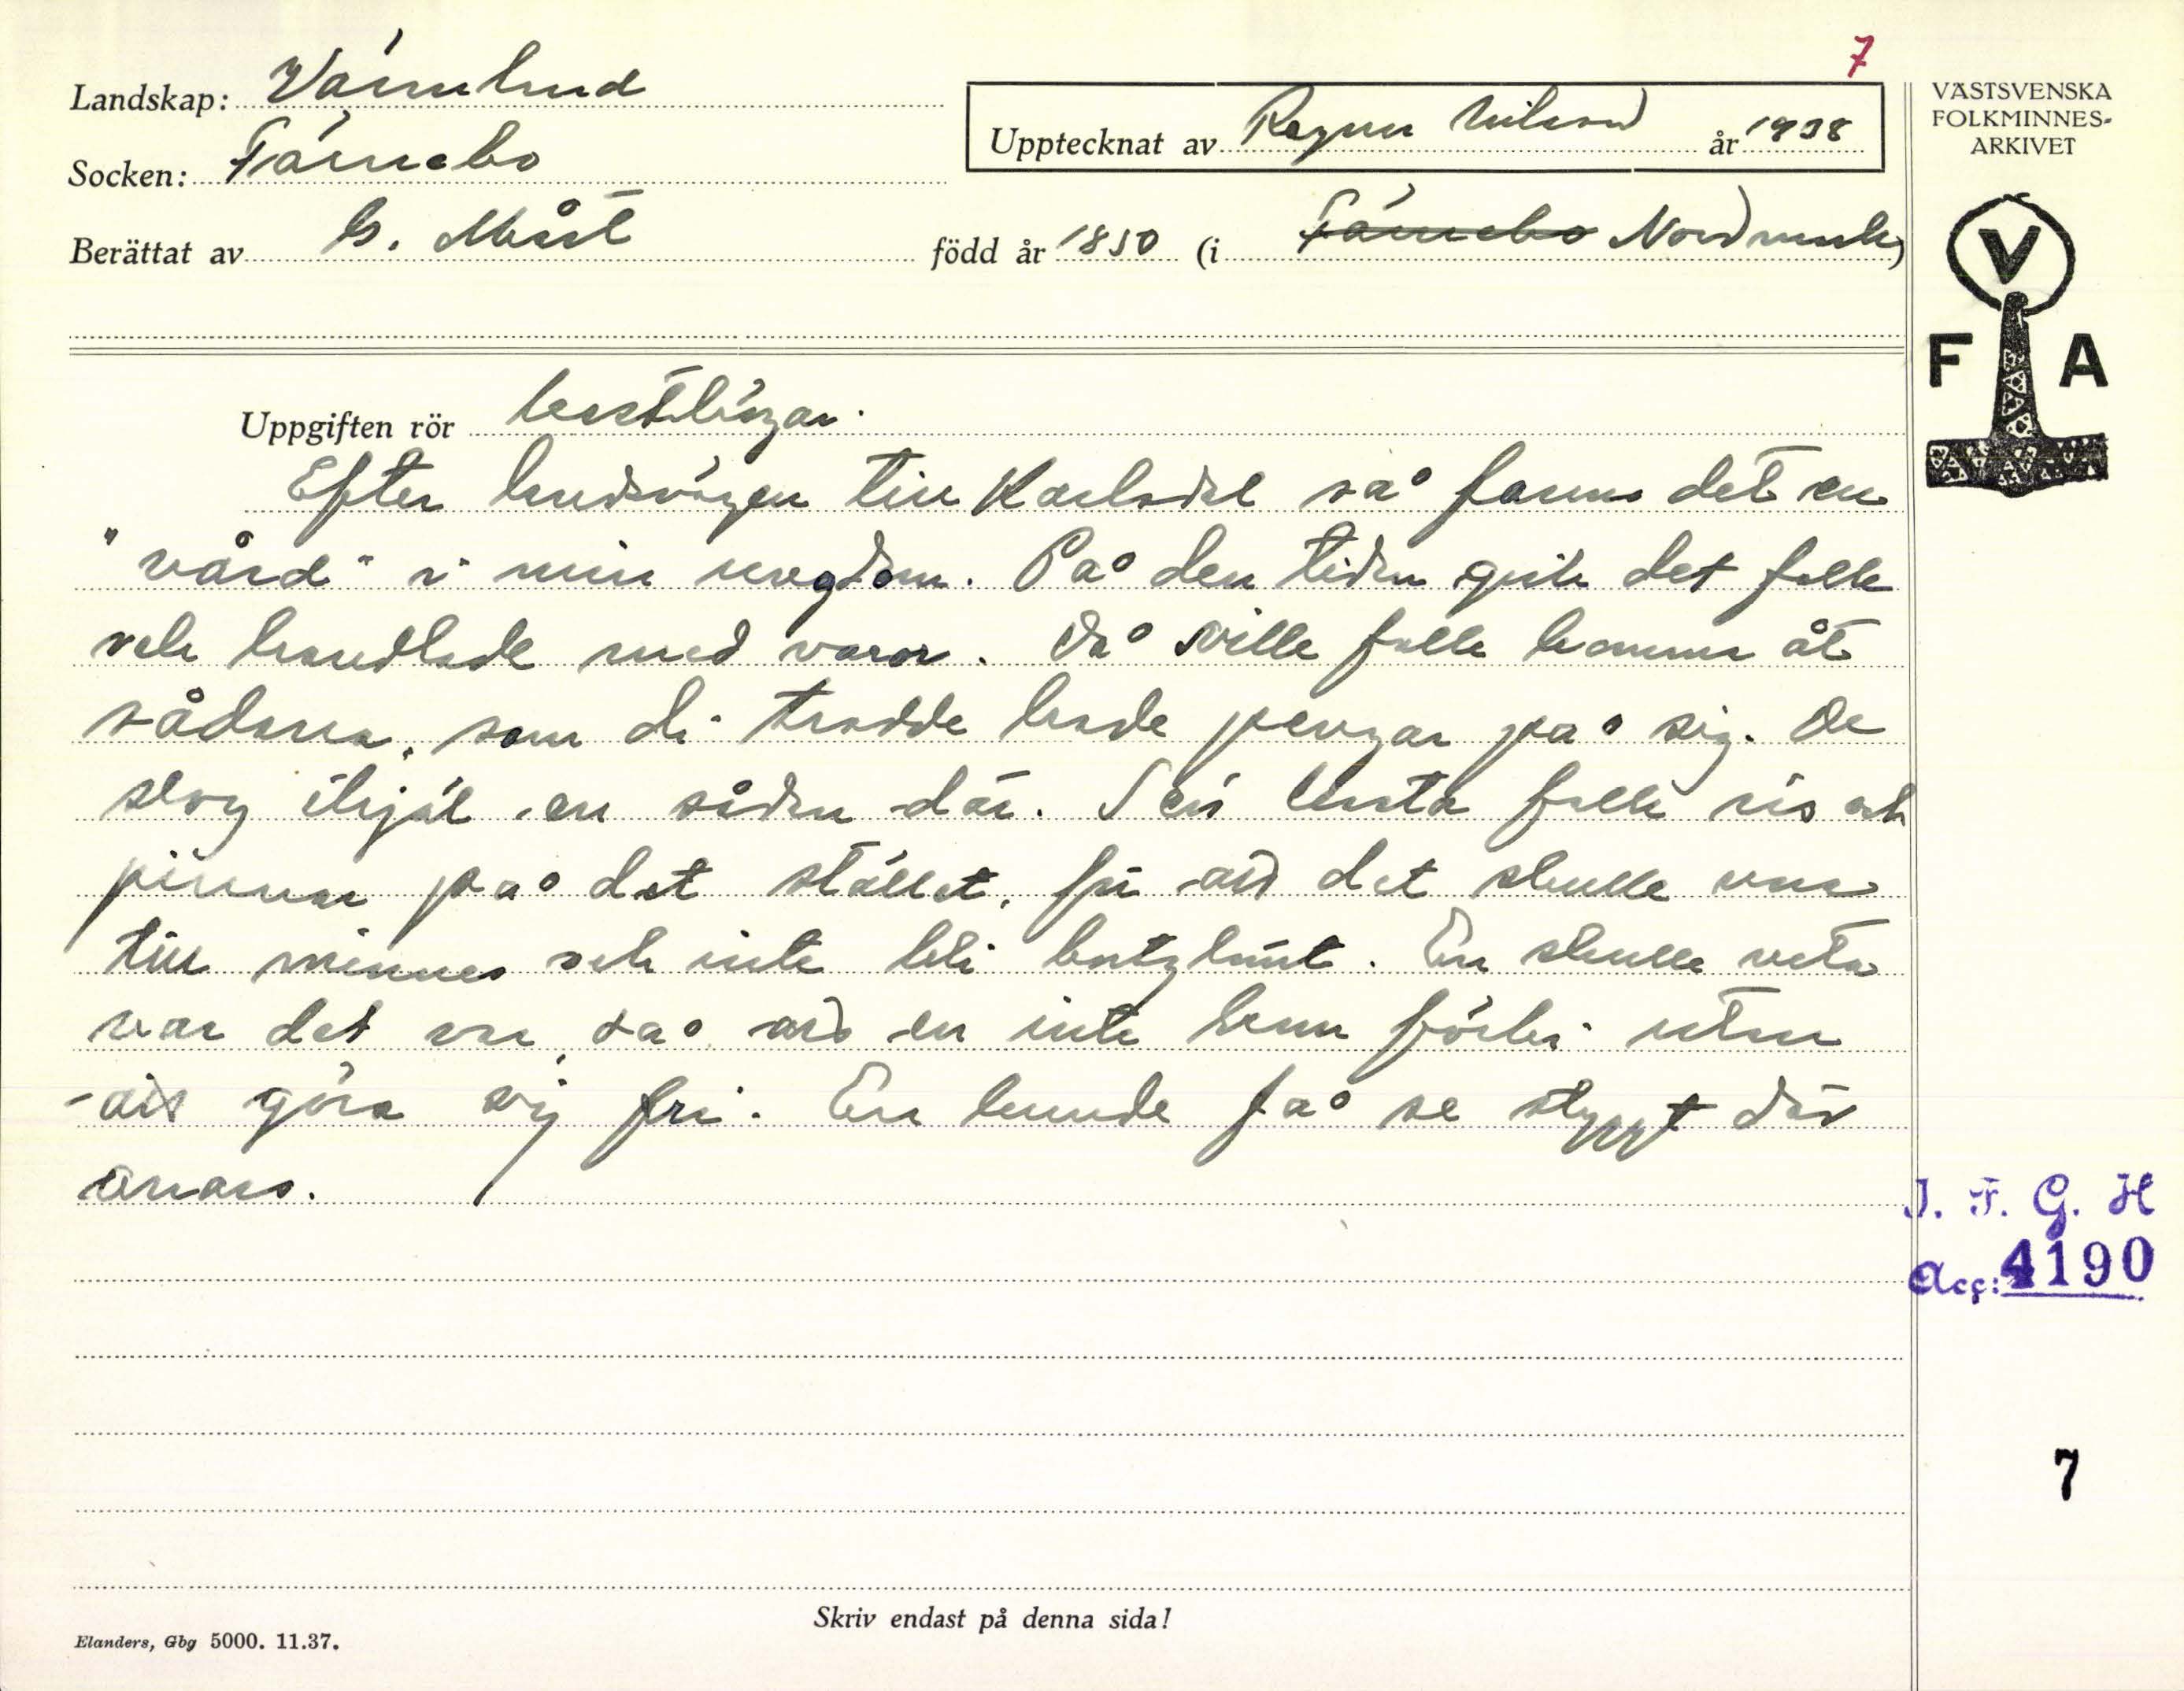 7
Landskap: Värmland
Socken: Färnebo
Berättat av G. Måål
Upptecknat av Ragnar Nilsson år 1938
född år 1850 (i Färnebo Nordmark)
VÄSTSVENSKA
FOLKMINNES-
ARKIVET
V
F A
Uppgiften rör kasthögar.
Efter landsvägen till Karlsdal så fanns det en
"vård" i min ungdom. På den tiden gick det folk
och handlade med varor. Då ville folk komma åt
sådana, som di trodde hade pengar på sig. De
slog ihjäl en sådan där. Sen kasta folk ris och
pinnar på det stället, för att det skulle vara
till minnes och inte bli bortglömt. En skulle veta
var det var, så att en inte kom förbi utan
att göra sig fri. En kunde få se styggt där
annars.
I. F. G. H
Acc: 4190
7
Skriv endast på denna sida!
Elanders, Gbg 5000. 11.37.